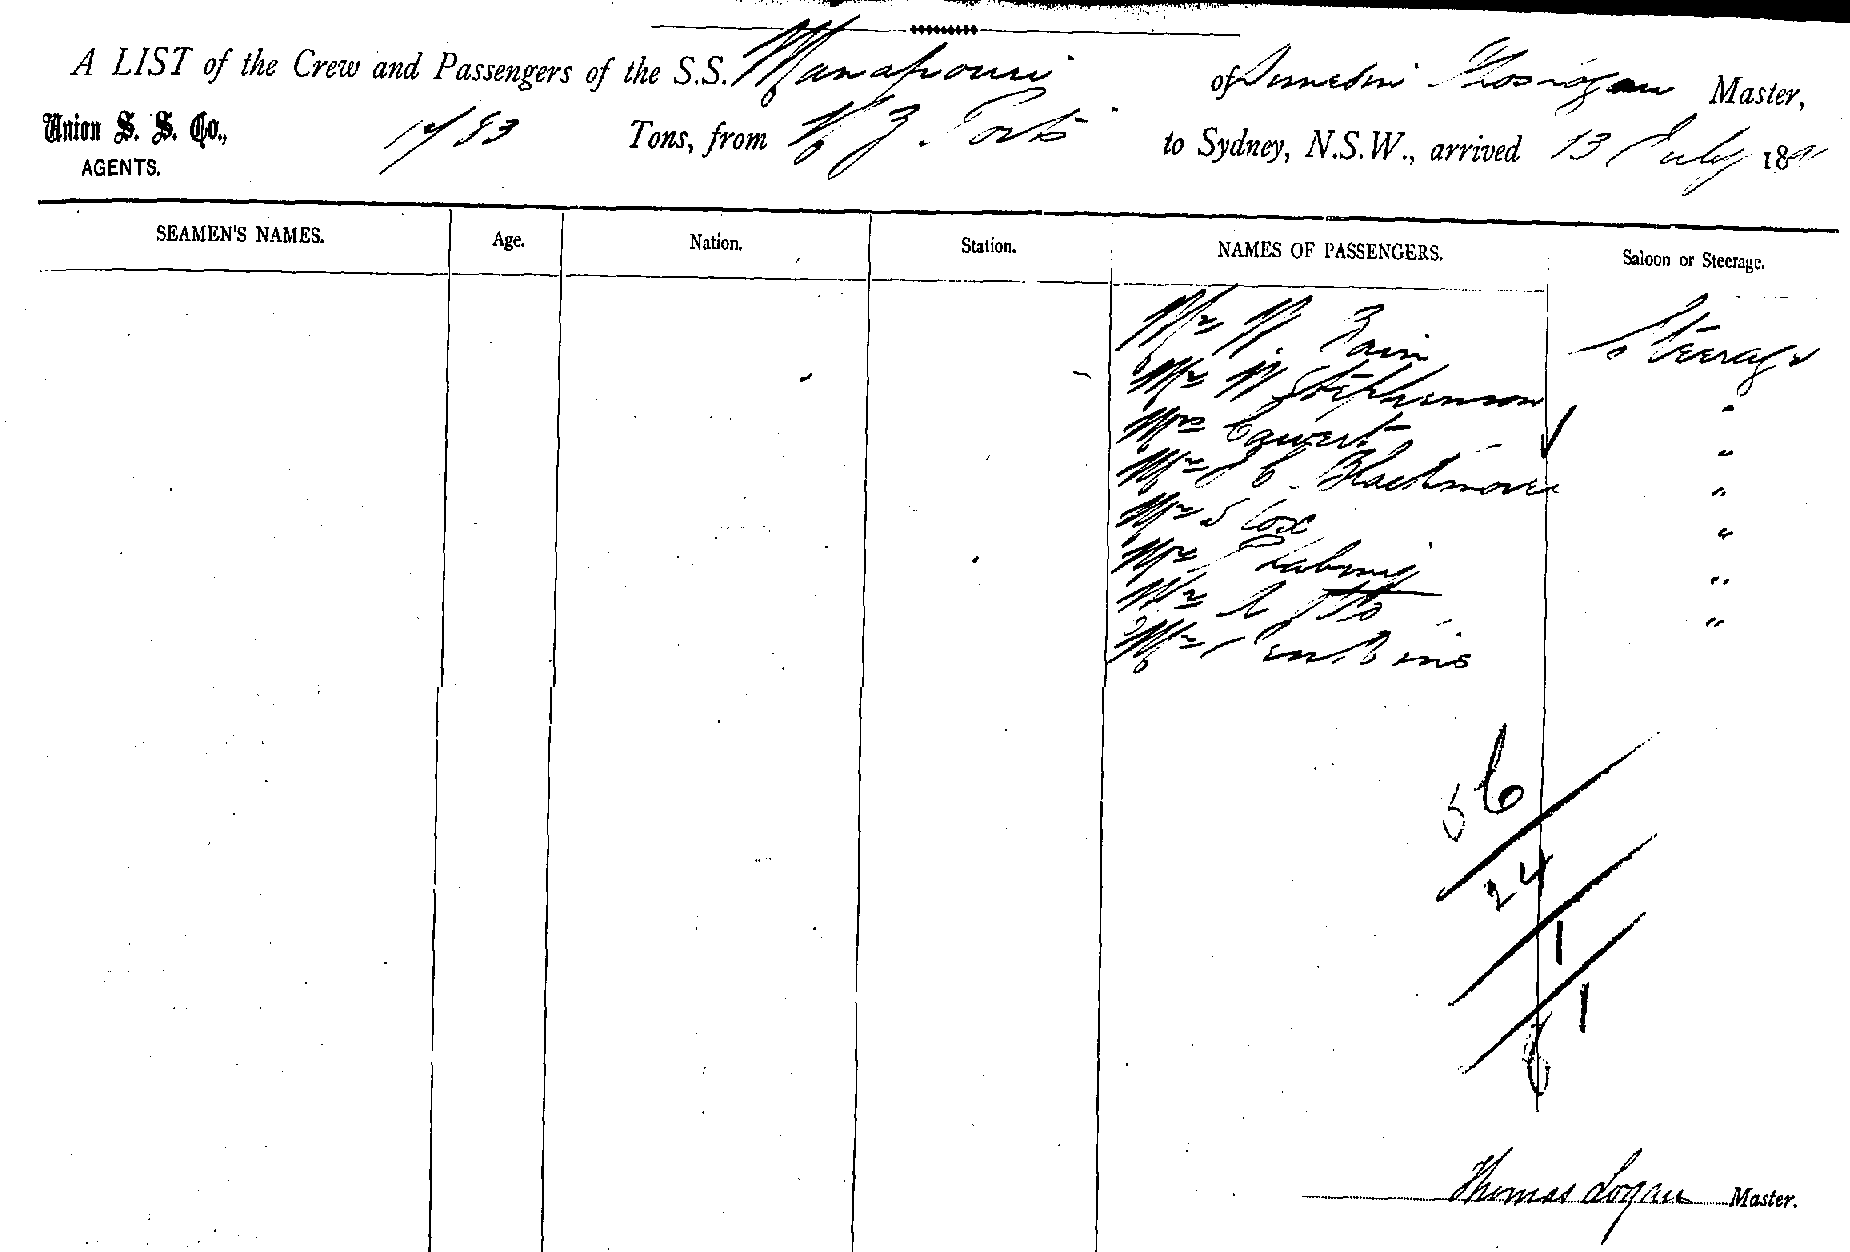 A LIST of the Crew and Passengers of the S.S. Manapouri of Dunedin Thos Logan Master,
Union S. S. Co., AGENTS. 1783 Tons, from N Z Ports to Sydney, N.S.W., arrived 13 July 1891
SEAMEN'S NAMES. Age. Nation. Station. NAMES OF PASSENGERS. Saloon or Steerage.
Mr W Steerage
Mr W Stephenson "
Mrs "
Mr J C Blackmore "
Mr S Cox "
Mr "
Mr "
Mr Jenkins
56
24
1
1
Thomas Logan Master.